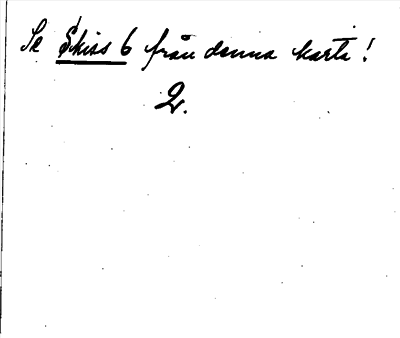 Se Skiss 6 från denna karta!
2.